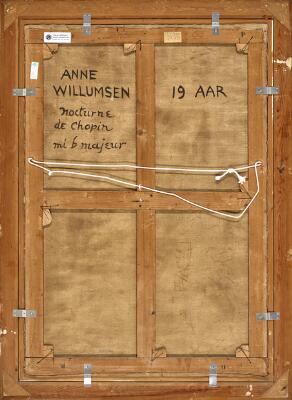 ANNE
WILLUMSEN
19 AAR
nocturne
de Chopin
mi b majeur